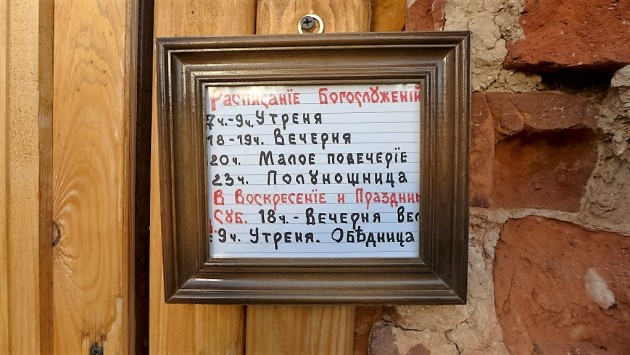 Расписанїе Богослуженїй
7ч.-9ч. Утреня
18-19ч. Вечерня
20ч. Малое повечерїе
23ч. Полунощница
В Воскресенїе и Праздни
Суб. 18ч.-Вечерня Вс
9ч. Утреня. Обѣдница